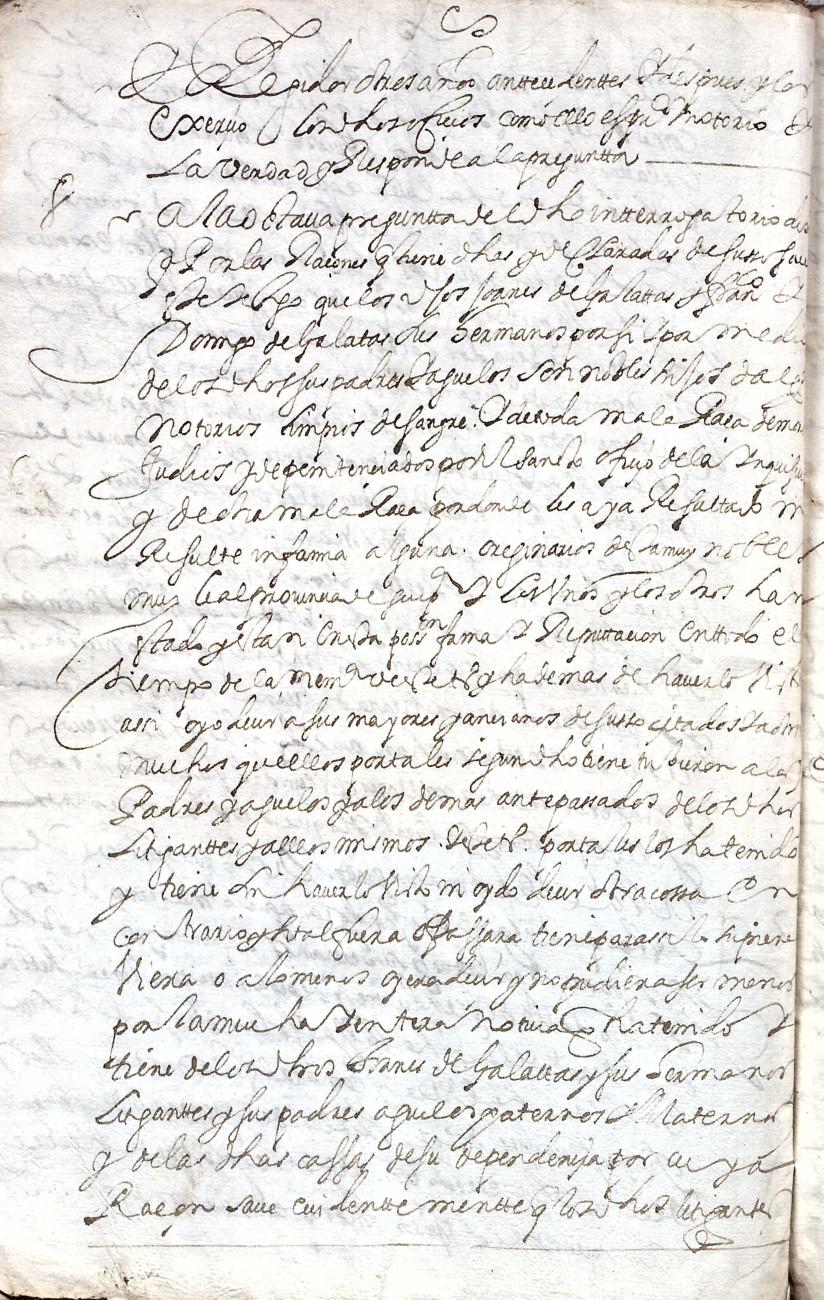 Regidor otros años anttecedenttes y despues y los
Exerçio los dhos ofiçios como ello es pu^co y notorio
La verdad y Responde a la preguntta
8 A la octaua preguntta del dho intterrogatorio dixo
q Por las Raçones q tiene dhas y declaradas de susso saue
este testigo que los dhos Joanes de Galattas y fran^co
Domingo de Galatas sus hermanos por si y por medio
de los dhos sus padres y aguelos son nobles hijos dalgo
notorios limpios de sangre y de toda mala Raça de
Judios y de penitenciados por el sancto ofiçio de la Inquisi
y de otra mala Raça por donde les aya Resultado ni
Resulte infamia alguna. originarios de la muy noble y
muy leal Prouincia de guip^a y los vnos y los otros han
estado y estan en esta poss^on fama y Reputacion en ttodo el
tiempo de la mem^a de este t^o q ha demas de hauerlo Visto
assi oyo deçir a sus mayores y ancianos de susso çitados y a otros
muchos que ellos por tales segun dho tiene tubieron a los
Padres y aguelos y a los demas antepassados de los dhos
Litiganttes y a ellos mismos. y este t^o por tales los ha tenido
y tiene sin hauer Visto ni oydo deçir otra cossa en
contrario q si tal fuera o Passara tiene para si lo supiera
Viera o a lo menos oyera deçir y no pudiera ser menos
por la mucha y entera notiçia q ha tenido y
tiene de los dhos Joanes de Galattas y sus hermanos
Litiganttes y sus padres aguelos paternos y Maternos
y de las dhas cassas de su dependençia por cuya
Raçon saue euidenttementte q los dhos litigantes